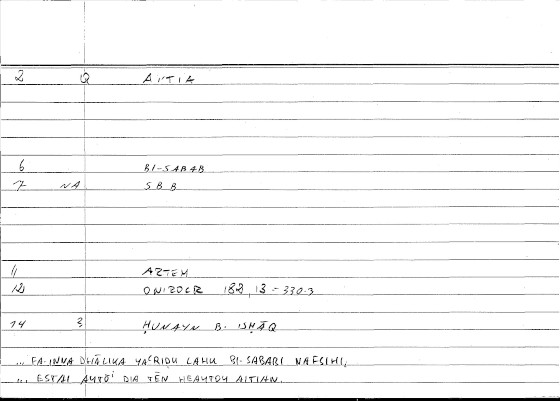 2 Q AITIA
6 BI-SABAB
7 NA SBB
11 AZTEM
12 182,13-330.3
14 3 ḤUNAYN B. ISḤĀQ
... FA-INNA DHĀLIKA YAʿRIḌU LAHU BI-SABABI NAFSIHI,
... ESTAI AUTŌI DIA TĒN HEAUTOU AITIAN.